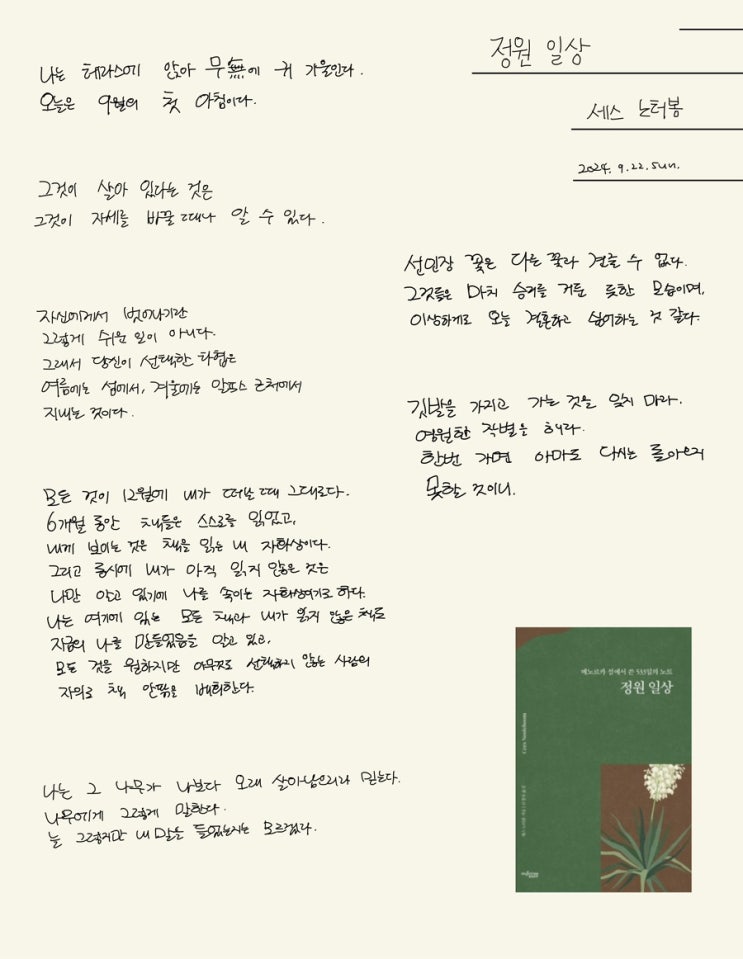 정원 일상
세스 노터봄
2024. 9. 22. sun.
나는 테라스에 앉아 무無에 귀 기울인다.
오늘은 9월의 첫 아침이다.
그것이 살아 있다는 것은
그것이 자세를 바꿀 때나 알 수 있다.
자신에게서 벗어나기란
그렇게 쉬운 일이 아니다.
그래서 당신이 선택한 타협은
여름에는 섬에서, 겨울에는 알프스 근처에서
지내는 것이다.
모든 것이 12월에 내가 떠날 때 그대로다.
6개월 동안 책들은 스스로를 읽었고,
내게 보이는 것은 책을 읽는 내 자화상이다.
그리고 동시에 내가 아직 읽지 않은 것은
나만 알고 있기에 나를 속이는 자화상이기도 하다.
나는 여기에 있는 모든 책과 내가 읽지 않은 책도
지금의 나를 만들었음을 알고 있고,
모든 것을 원하지만 아무것도 선택하지 않는 사람의
자의로 책 안팎을 배회한다.
나는 그 나무가 나보다 오래 살아남으리라 믿는다.
나무에게 그렇게 말한다.
늘 그렇지만 내 말을 들었는지는 모르겠다.
선인장 꽃은 다른 꽃과 견줄 수 없다.
그것들은 마치 승리를 거둔 듯한 모습이며,
이상하게도 오늘 결혼하고 싶어하는 것 같다.
깃발을 가지고 가는 것을 잊지 마라.
영원한 작별은 하라.
한번 가면 아마도 다시는 돌아오지
못할 것이니.
메노르카 섬에서 쓴 533일의 노트
정원 일상
Cees Nooteboom